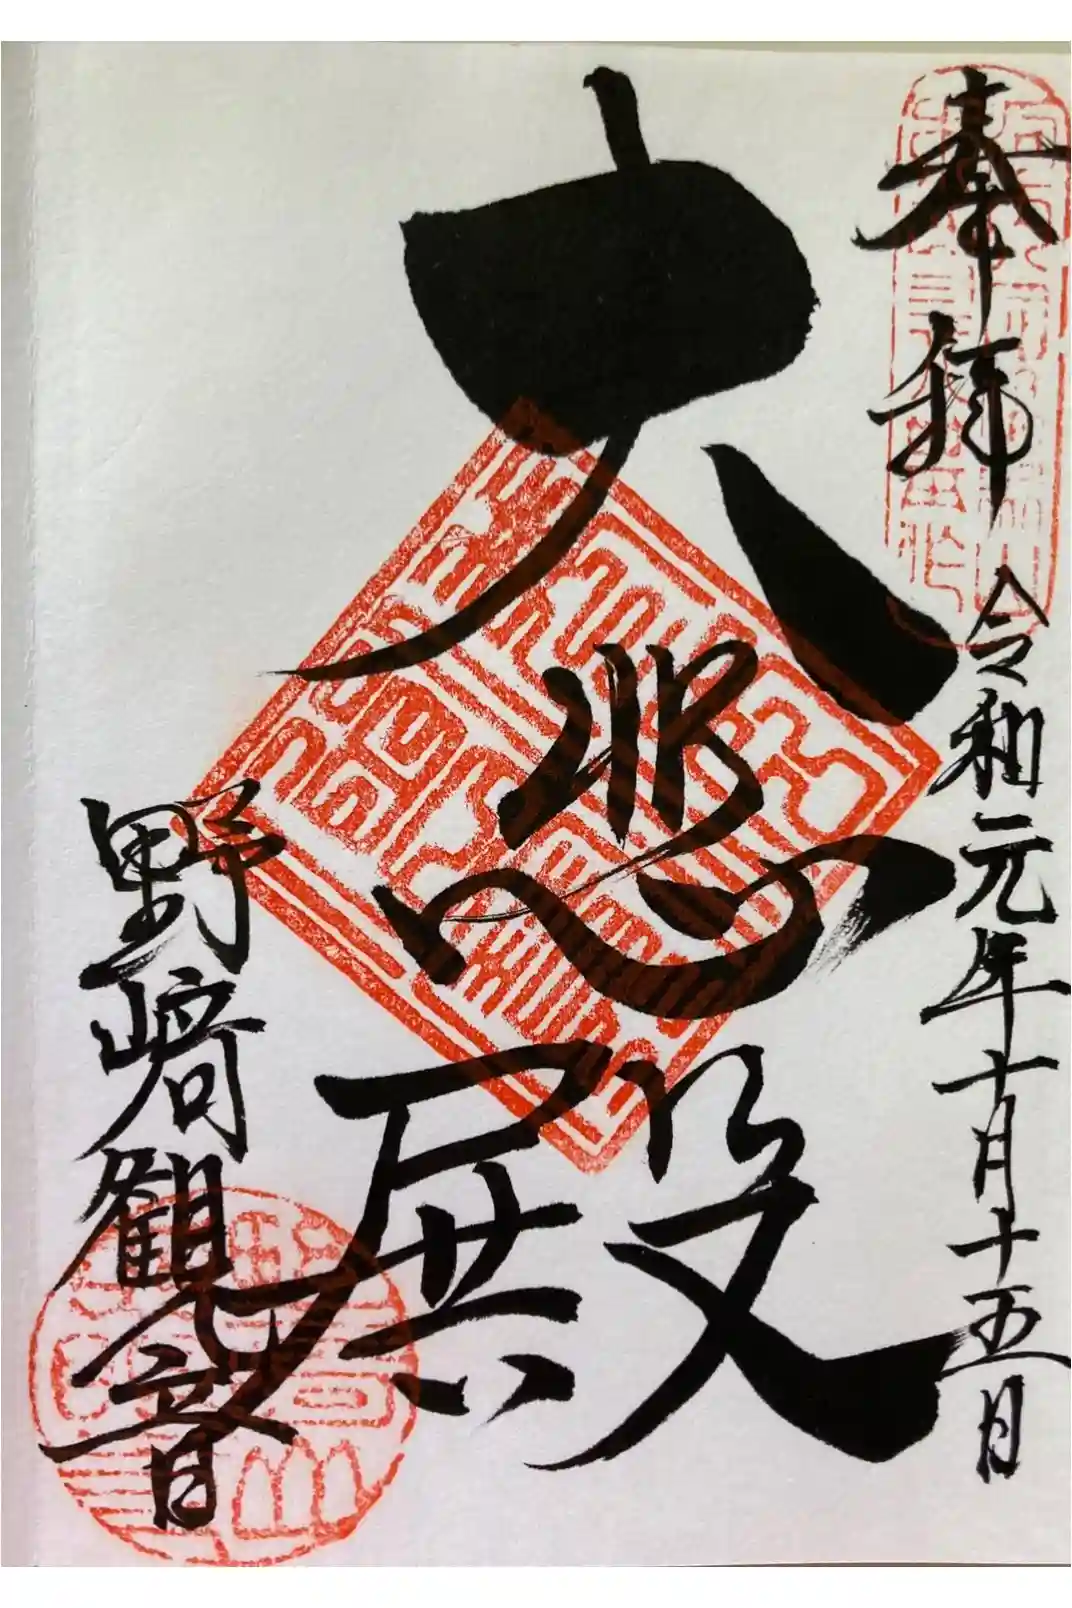 奉拝 令和元年十月十五日
大悲殿
野﨑観音